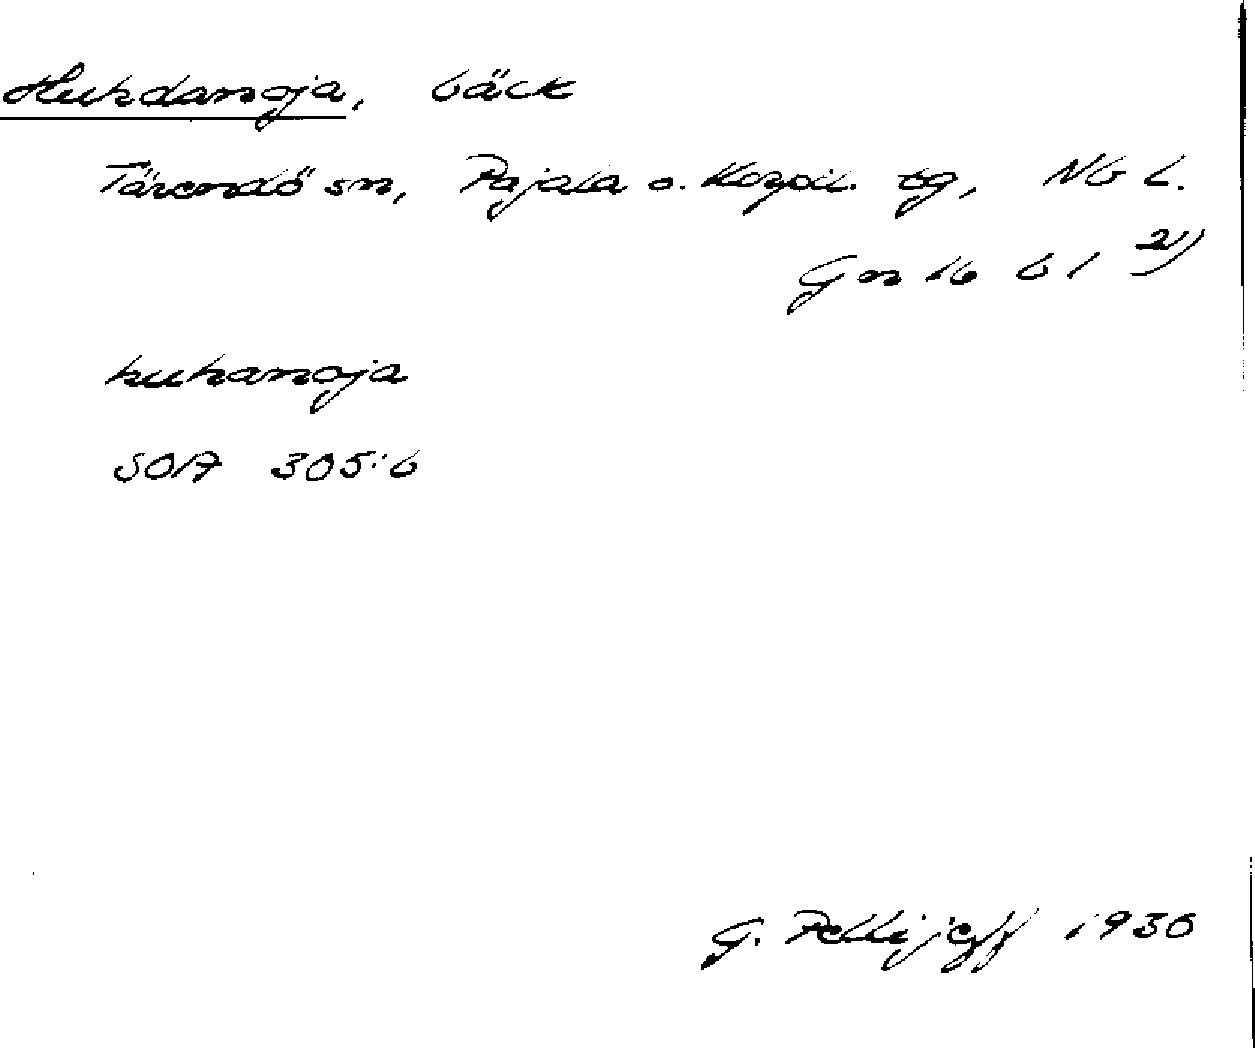 Huhdanoja, bäck
Tärendö sn, Pajala o. Korpil. tg, Nb L.
Gn 16 b 1 2)
huhanoja
SOA 305:6
G. Pellijeff 1930